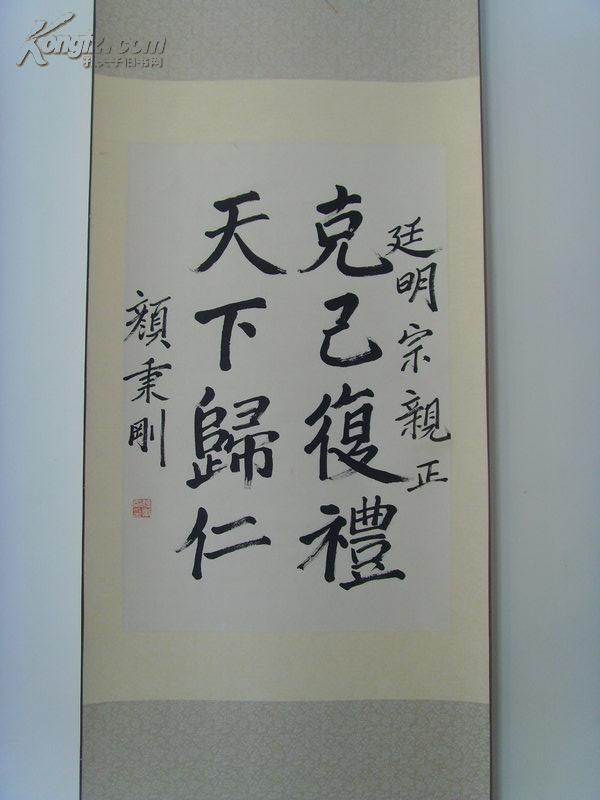 Kongfz.com
孔夫子旧书网
廷明宗親正
克己復禮
天下歸仁
顏秉剛